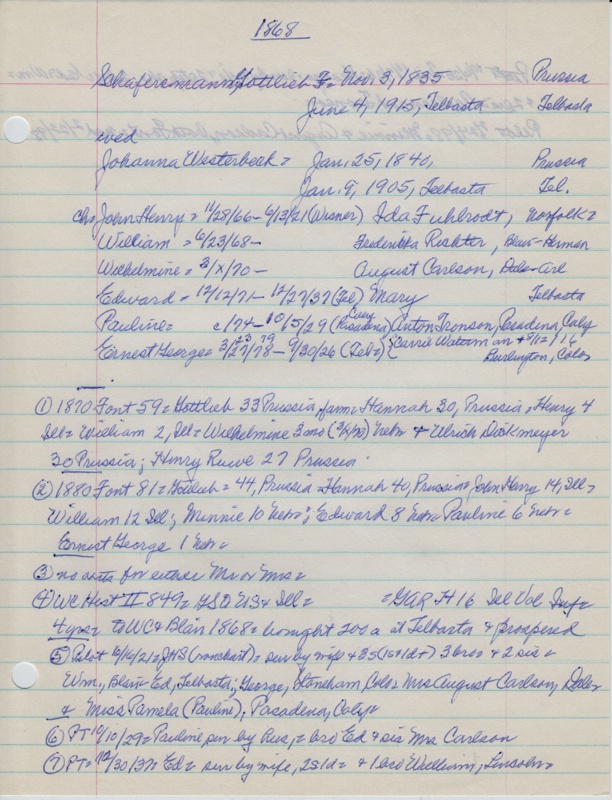 1868
Schafersmann, Gottlieb F = Nov. 3, 1835 Prussia
June 4, 1915, Telbasta Telbasta
wed
Johanna Westerbeck = Jan. 25, 1840, Prussia
Jan. 9, 1905, Telbasta Tel.
chn John Henry = 11/28/66 - 6/13/21 (Wisner) Ida Fuhlrodt, Norfolk =
William = 6/23/68 - Frederika Rickter, Blair - Herman
Wilhelmine = 3/x/70 - August Carlson, Dale - Arl
Edward = 12/12/71 - 12/27/37 (Tel) Mary Telbasta
Pauline = c/74 - 10/5/29 (Pasadena, Caly) Anton Tronson, Pasadena, Caly
Ernest George = 3/27/78 - 9/30/26 (Feb =) {Carrie Waterman + 9/12/16
Burlington, Colo
① 1870 Font 59 = Gottlieb 33 Prussia, farm = Hannah 30, Prussia, Henry 4
Ill = William 2, Ill = Wilhelmine 3 mo (3/x/70) Nebr + Ulrich Dickmeyer
30 Prussia; Henry Ruwe 27 Prussia.
② 1880 Font 81 = Gottlieb = 44, Prussia = Hannah 40, Prussia = John Henry 14, Ill =
William 12 Ill; Minnie 10 Nebr; Edward 8 Nebr = Pauline 6 Nebr =
Ernest George 1 Nebr =
③ no obits for either Mr or Mrs =
④ WC Hist II 849 = GSO US & Ill = = GAR H 16 Ill Vol Inf =
4 yrs = to WC & Blair 1868 = bought 200 a at Telbasta & prospered
⑤ Pilot 6/16/21 = JHS (monchart) = surv by wife + 3S (1s + 1d +) 3 bros + 2 sis =
Wm., Blair - Ed, Telbasta; George, Stoneham, Colo = Mrs August Carlson, Dale =
& Miss Pamela (Pauline), Pasadena, Caly =
⑥ PT 10/10/29 = Pauline surv by Hus, = bro Ed & sis Mrs Carlson
⑦ PT = 12/30/37 = Ed = surv by wife, 2S 1d = + 1 bro William, Lincoln =